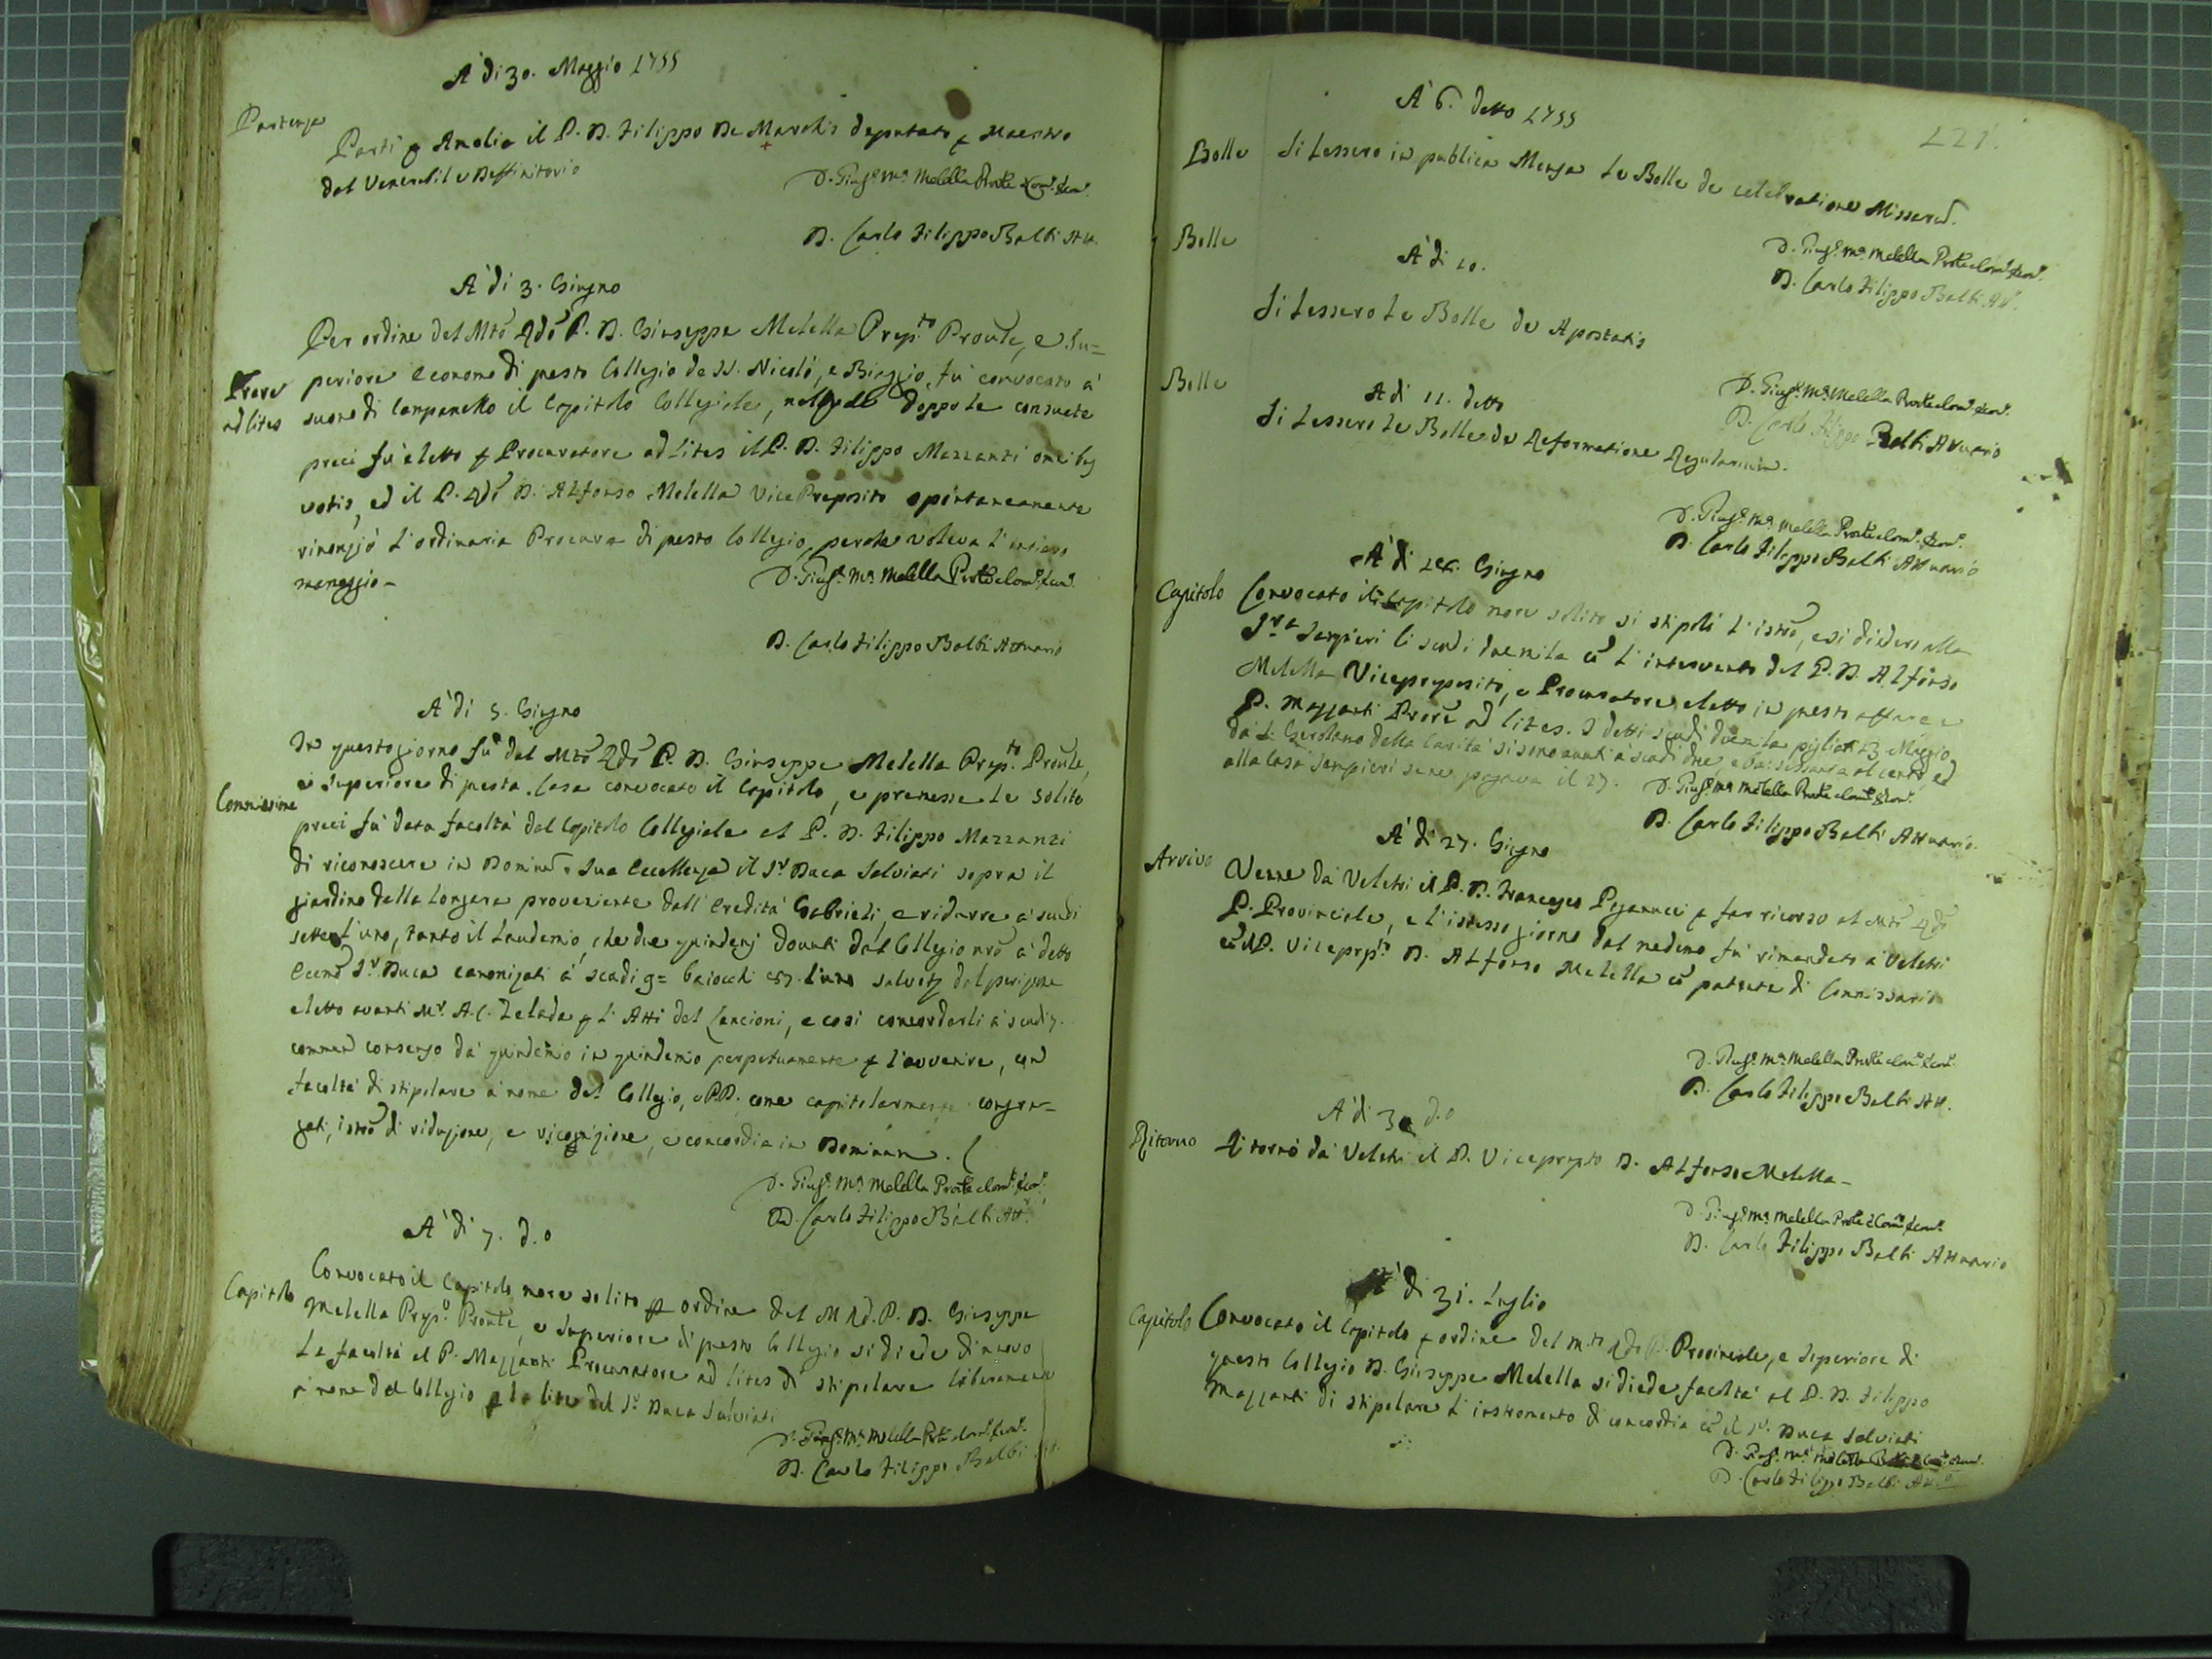 A di 30. Maggio 1755
Partenza
Parti p Amelia il P. D. Filippo De Marchis deputato p Maestro
dal Venerabile Deffinitorio
D. Gius.e M.a Melella Prov.le Com.o Econ.
D. Carlo Filippo Balbi Att.
A' di 3. Giugno
Per ordine del Mto Rdo P. D. Giuseppe Melella Prep.to Prov.le, e Su=
periore Economo di questo Collegio de SS. Nicolò, e Biaggio, fu convocato a'
Prore
ad lites
suono di Campanello il Capitolo Collegiale, nel quale doppo le consuete
preci fù eletto p Procuratore ad Lites il P. D. Filippo Mazzanti omibus
votis, ed il P. Rdo D. Alfonso Melella Vice Preposito spontaneamente
rinonziò l'ordinaria Procura di questo Collegio, perche voleva l'intiero
maneggio -
D. Gius.e M.a Melella Prov.le Com.o Econ.
D. Carlo Filippo Balbi Attuario
A' di 5. Giugno
In questo giorno fu dal Mto Rdo P. D. Giuseppe Melella Prep.to Prov.le,
e Superiore di questa Casa convocato il Capitolo, e premesse le solite
Commissione
preci fù data facoltà dal Capitolo Collegiale al P. D. Filippo Mazzanti
di riconoscere in Dominu Sua Eccellenza il Sr Duca Salviati sopra il
giardino della Longara proveniente dall'Eredità Gabrieli, e ridurre a' scudi
sette l'uno, tanto il Laudemio, che due quindenj dovuti dal Collegio nro à detto
Eccmo Sr Duca canonizati a' scudi 9= baiocchi 57. l'uno
eletto avanti Mr. A.C. Zelada p l'Atti del Cancioni, e così concordarli a' scudi 7.
commun consenso da' quindenio in quindenio perpetuamente p l'avvenire, con
facoltà di stipolare a nome del Collegio, e PP. come capitolarmente congre=
gati, istro di riduzione, e ricognizione, e concordia in Dominum.
D. Gius.e M.a Melella Prov.le Com.o Econ.
D. Carlo Filippo Balbi Att.
A' di 7. d.o
Capitolo
Convocato il Capitolo more solito p ordine del M Rd. P. D. Giuseppe
Melella Prep.o Prov.le, e Superiore di questo Collegio si diede di nuovo
la facoltà al P. Mazzanti Procuratore ad lites di stipolare liberamente
a nome del Collegio p la lite del Sr Duca Salviati
D. Gius.e M.a Melella Prov.le Com.o Econ.
D. Carlo Filippo Balbi Att.
221.
A' 6. detto 1755
Bolle
Si Lessero in publica Mensa le Bolle de celebratione Missarum.
D. Gius.e M.a Melella Prov.le Com.o Econ.
D. Carlo Filippo Balbi Att.
Bolle
A' di 10.
Si Lessero le Bolle de Apostatis
D. Gius.e M.a Melella Prov.le Com.o Econ.
D. Carlo Filippo Balbi Attuario
Bolle
A di 11. detto
Si Lessero le Bolle de Reformatione Regularium.
D. Gius.e M.a Melella Prov.le Com.o Econ.
D. Carlo Filippo Balbi Attuario
A' di Giugno
Capitolo
Convocato il Capitolo more solito si stipolò l'istro, e si diedero alla
Sra Sampieri li scudi duemila cu l'intervento del P. D. Alfonso
Melella Vicepreposito, e Procuratore eletto in questo affare e
P. Mazzanti Prore ad lites. I detti scudi duemila pigliati 23 Maggio
da S. Gerolamo della Carità si sono avuti a' scudi due, e bai: sessanta al cento, ed
alla Casa Sampieri se ne pagava il 27.
D. Gius.e M.a Melella Prov.le Com.o Econ.
D. Carlo Filippo Balbi Attuario.
A' di 27. Giugno
Arrivo
Venne da Veletri il P. D. Francesco Peganucci p far ricorso al Mto Rdo
P. Provinciale, e l'istesso giorno dal medemo fù rimandato a Veletri
cu il P. Viceprep.to D. Alfonso Melella cu patente di Commissario
D. Gius.e M.a Melella Prov.le Com.o Econ.
D. Carlo Filippo Balbi Att.
A' di 30 d.o
Ritorno
Ritornò da Veletri il P. Viceprepto D. Alfonso Melella -
D. Gius.e M.a Melella Prov.le Com.o Econ.
D. Carlo Filippo Balbi Attuario
A' di 31. Luglio
Capitolo
Convocato il Capitolo p ordine del m.to Rdo P. Provinciale, e Superiore di
questo Collegio D. Giuseppe Melella si diede facoltà al P. D. Filippo
Mazzanti di stipolare l'instromento di concordia cu il Sr. Duca Salviati
D. Gius.e M.a Melella Prov.le Com.o Econ.
D. Carlo Filippo Balbi Att.